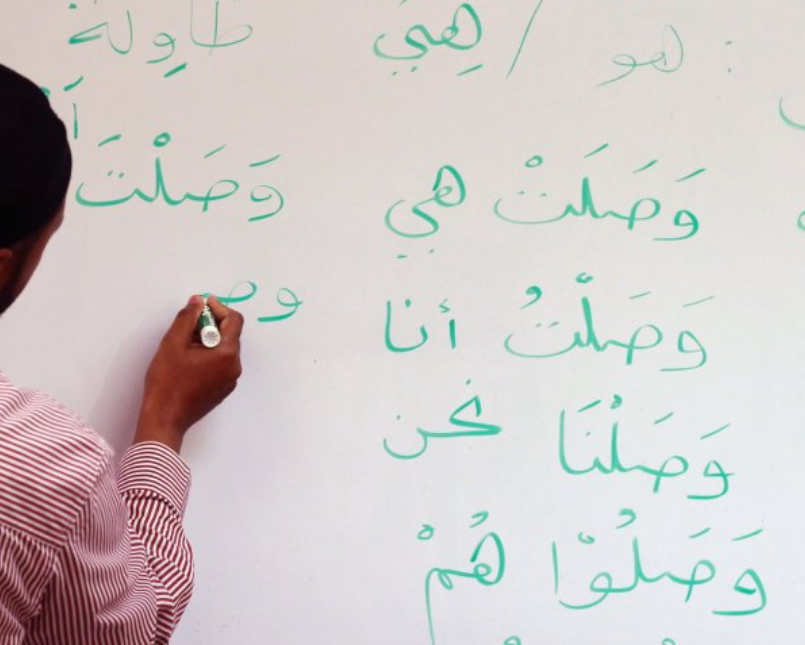 : هو / هِيَ طَاوِلَةٌ
وَصَلَتْ هي وَصَلْتَ
وَصَلْتُ أنا وص
وَصَلْنَا نحن
وَصَلُوْا هُمْ